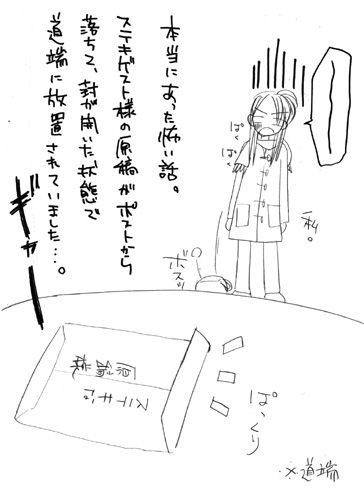 本当にあった怖い話。
ステキゲスト様の原稿がポストから
落ちて、封が開いた状態で
道端に放置されていました…。
ギャーーー
ぱく
ぱく
私。
ボスッ
ぱっくり
ステキゲ
原稿
※道端